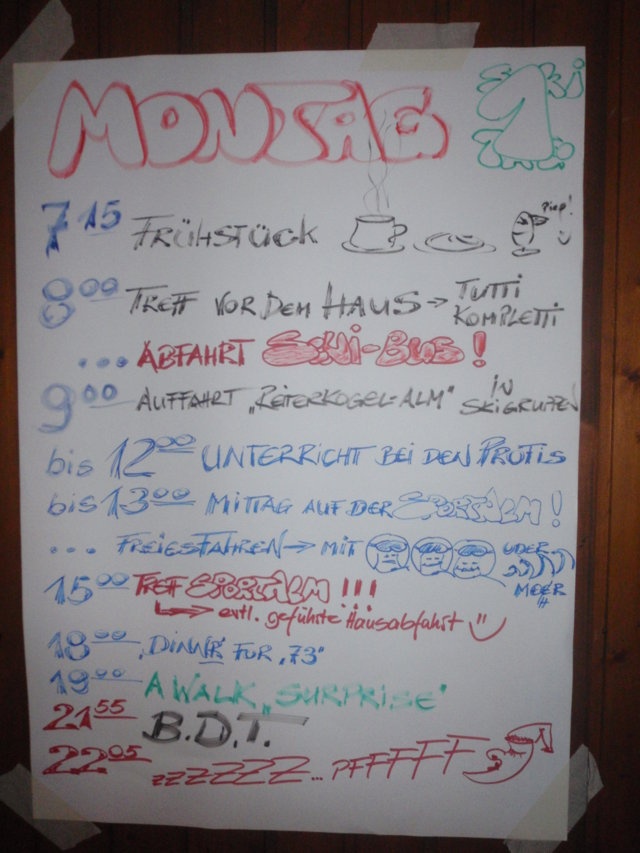 MONTAG 1
7 15 FRÜHSTÜCK Piep!
8 00 TREFF VOR DEM HAUS → TUTTI KOMPLETTI
... ABFAHRT SCHI-BUS!
9 00 AUFFAHRT „REITERKOGEL-ALM" IN SKIGRUPPEN
bis 12 00 UNTERRICHT BEI DEN PROFIS
bis 13 00 MITTAG AUF DER SPORTALM!
... FREIES FAHREN → MIT ODER MEER
15 00 TREFF SPORTALM !!!
↳ evtl. geführte Hausabfahrt
18 00 „DINNER FOR „73"
19 00 A WALK „SURPRISE"
21 55 B.D.T.
22 05 ZZZZZZZ... PFFFFFF